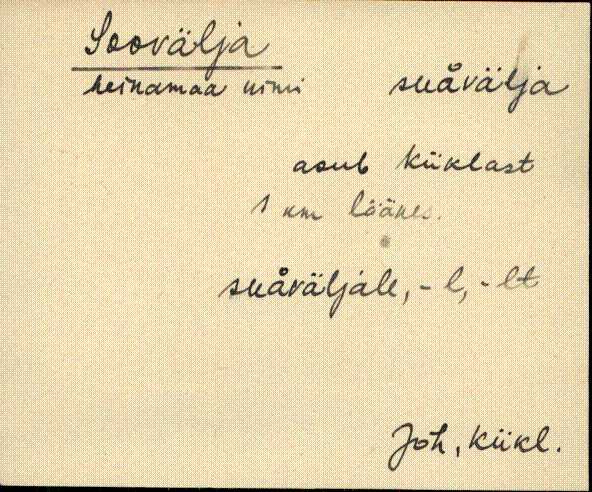 Soovälja
heinamaa nimi suåvälja
asub Küklast
1 km läänes.
suåväljale, -l, -lt
Joh, Kükl.